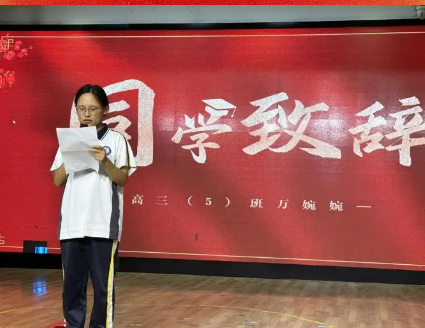 同学致辞
高三（5）班万婉婉一